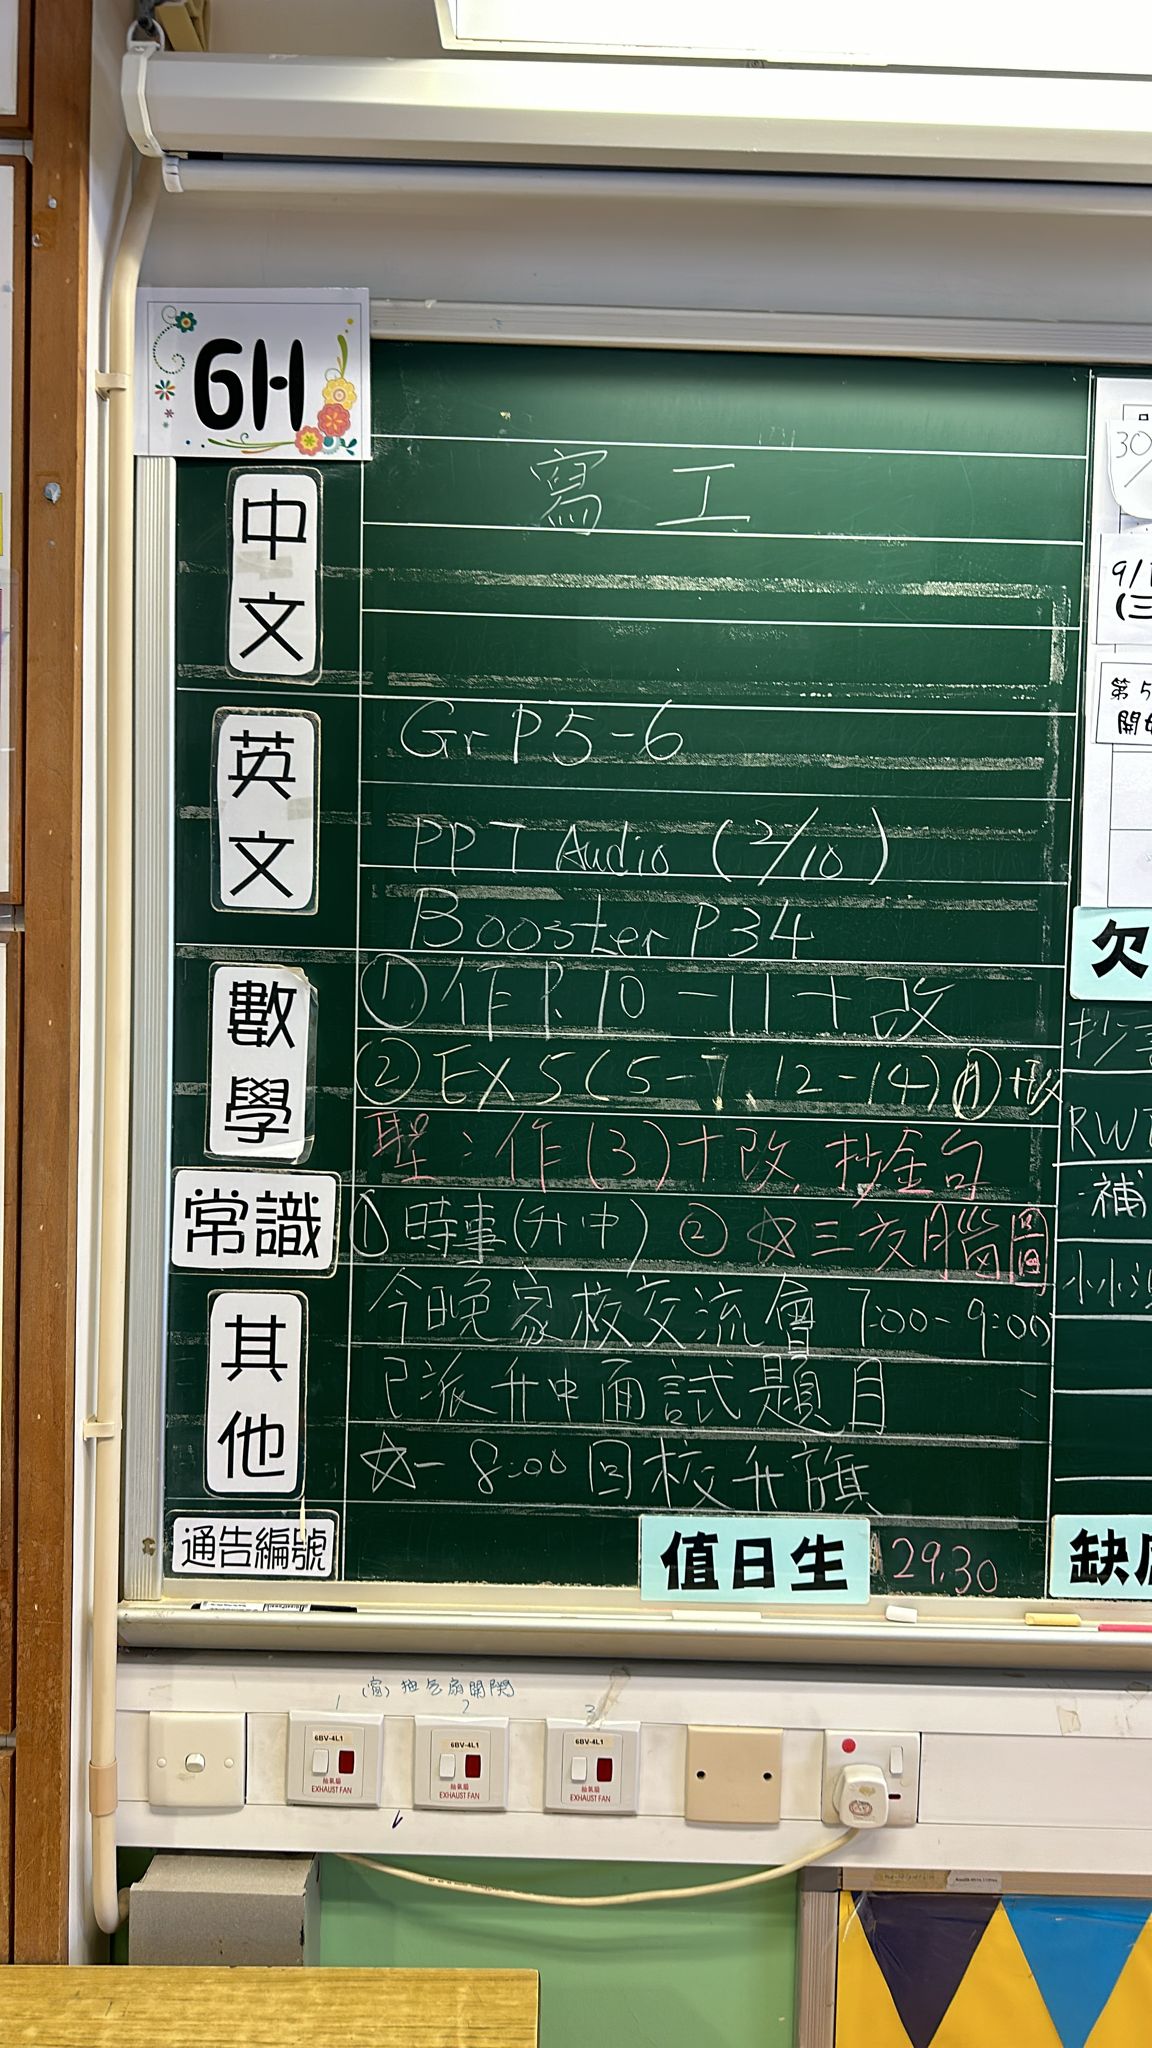 6H
中文
寫工
英文
Gr P5-6
PPT Audio (2/10)
Booster P34
數學
① 作P.10-11+改
② EX5(5-7, 12-14)
聖：作(3)+改, 抄金句
常識
① 時事(升中) ② ☆三文腦圖
其他
今晚家校交流會 7:00-9:00
已派升中面試題目
☆一 8:00回校升旗
通告編號
值日生
29.30
30
9/1
(三
第5
開始
欠
抄
RWT
補
小小
缺席
(窗) 抽气扇開関
1 2 3
6BV-4L1
抽氣扇
EXHAUST FAN
6BV-4L1
抽氣扇
EXHAUST FAN
6BV-4L1
抽氣扇
EXHAUST FAN